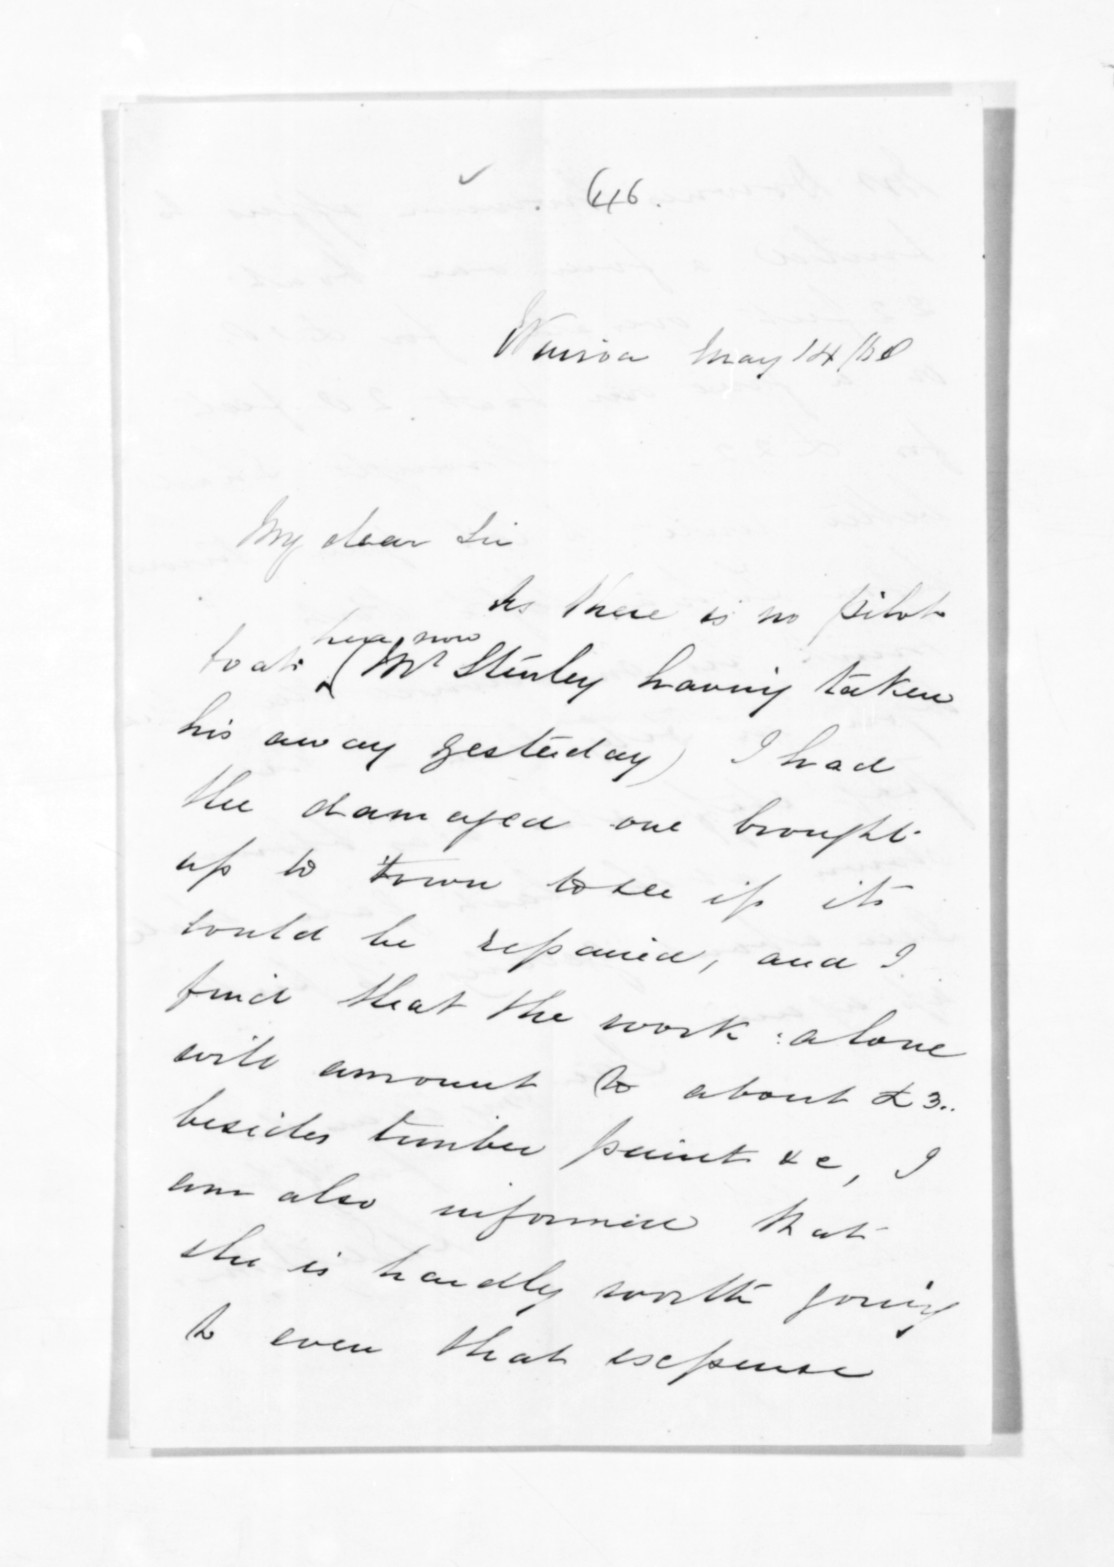 46.
Wairoa May 14/68
My dear Sir
As there is no pilot
boat here now (Mr Stinley having taken
his away yesterday) I had
the damaged one brought
up to town to see if it
could be repaired, and I
find that the work alone
will amount to about £3..
besides timber paint &c, I
am also informed that
she is hardly worth going
to even that expense